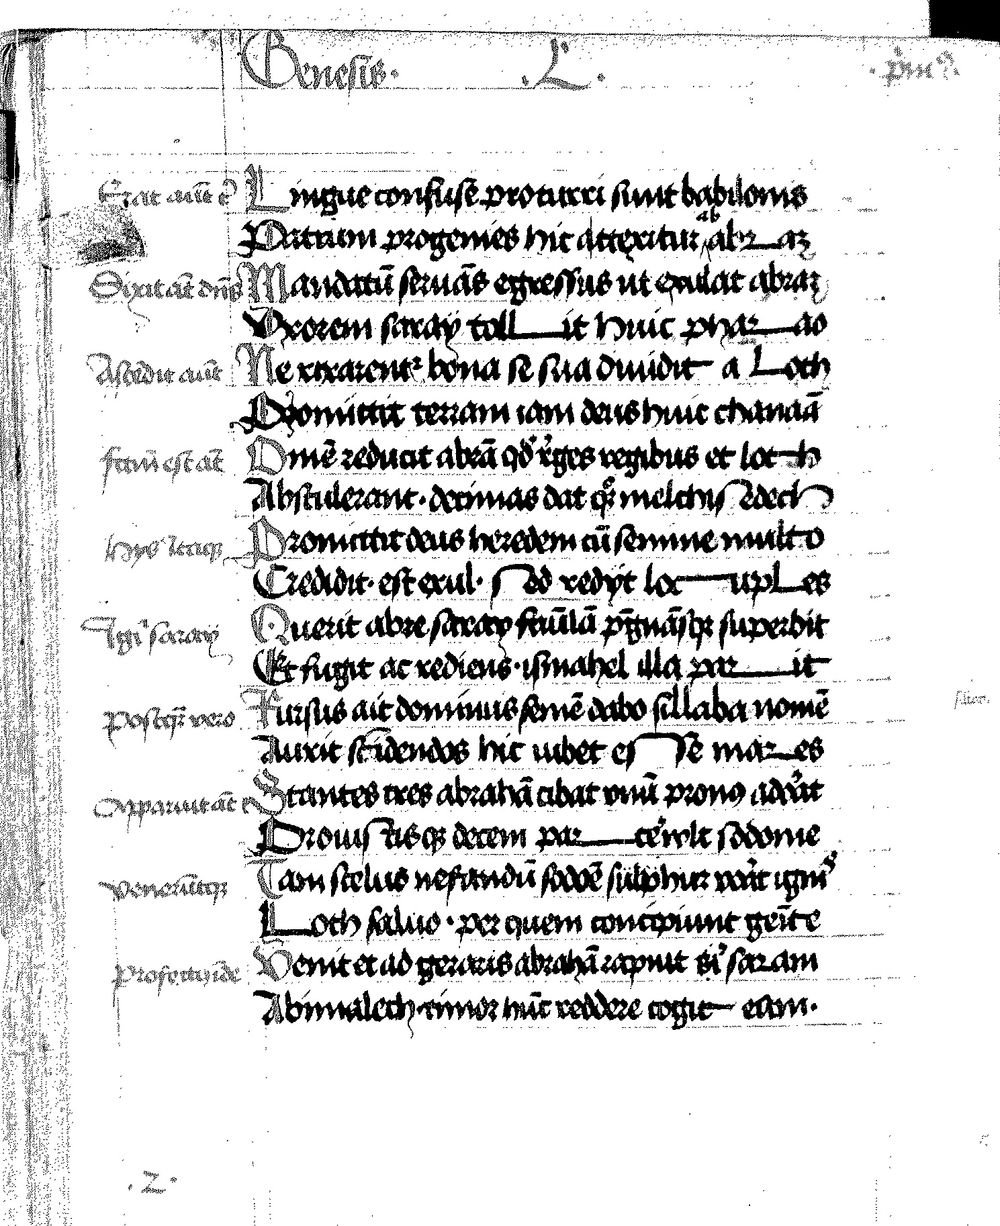 Genesis. .L. .pm9.
Erat autē t̄r̄
Lingue confuse pro turri sunt babilonis
Patrum progenies hic attexitur ab abraz
Dixit āt dn̄s
Mandatū seruās egressus ut exulat abraz
Vxorem saray tollit huic pharao
Ascēdit autē
Ne rixarentr bona se sua diuidit a Loth
Promittit terram iam deus huic chanaā
fctm̄ est āt
Omē reducit abrā qd reges regibus et loth
Abstulerant. decimas dat qr melchisedech
hys itaqz
Promittit deus heredem cū semine multo
Credidit. est exul. sed redyt locuples
Igr saray
Querit abre saray famulā pregnāsqz superbit
Et fugit ac rediens. ismahel illa parit
Postqz vero
Rursus ait dominus semē dabo sillaba nomē
Auxit scīdendos hic iubet esse mares
Apparuit āt
Stantes tres abrahā cibat vnū pronus adorat
Prouisis decem parcere vult sodome
Venerūtqz
Tam scelus nefandū sodoē sulphur vorat ignis
Loth saluo. per quem concipiunt genite
Profectus īde
Venit et ad geraris abrahā rapuit si saram
Abimalech timor hūc reddere cogit eam.
.2.